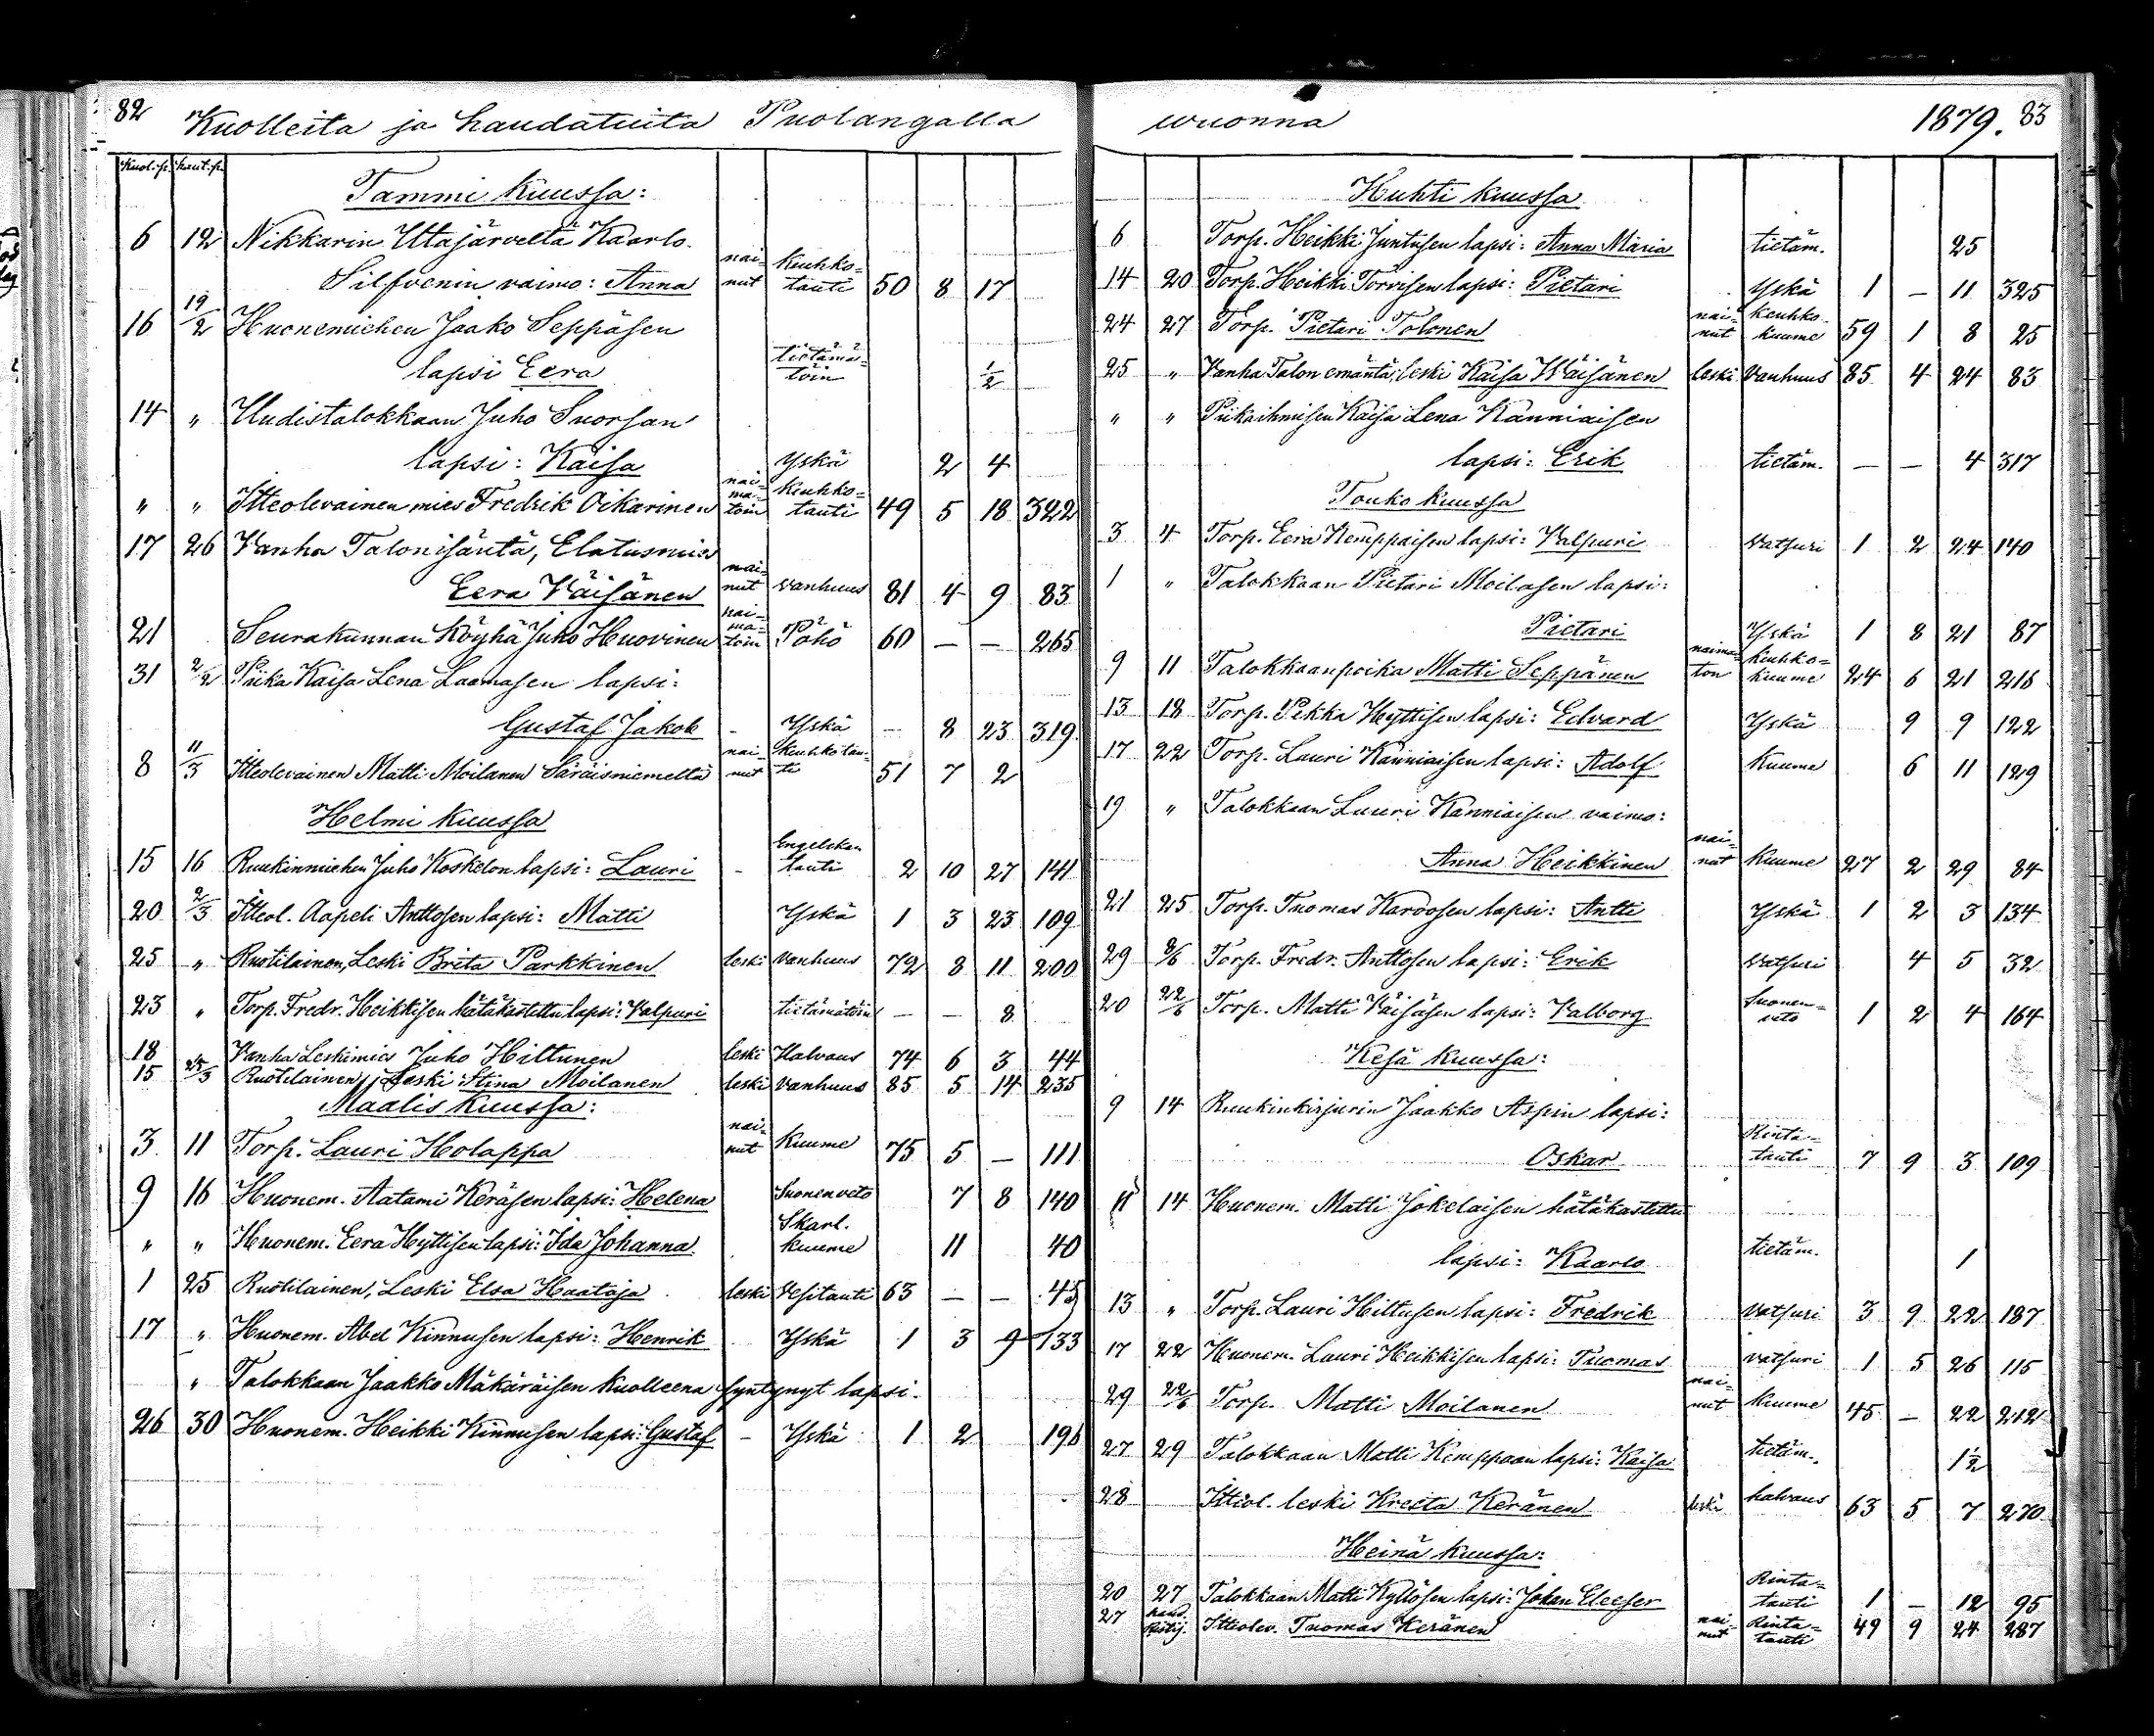 82 Kuolleita ja haudatuita Puolangalla
Kuol. p. haut. p.
Tammi kuussa:
6 12 Nikkarin Utajärveltä Kaarlo
Silfvenin vaimo: Anna nai-nut keuhko-tauti 50 8 17
16 19/2 Huonemiehen Jaako Seppäsen
lapsi Eera tietämä-töin 1/2
14 " Uudistalokkaan Juho Suorsan
lapsi: Kaisa Yskä 2 4
" " Itteolevainen mies Fredrik Oikarinen nai-ma-toin keuhko-tauti 49 5 18 322
17 26 Vanha Talonisäntä, Elatusmies
Eera Väisänen nai-nut vanhuus 81 4 9 83
21 Seurakunnan Köyhä Juho Huovinen nai-ma-toin Pöhö 60 — — 265
31 2/2 Piika Kaisa Lena Laamasen lapsi:
Gustaf Jakob - Yskä — 8 23 319
8 11/3 Itteolevainen Matti Moilanen Säräisniemellä nai-nut Keuhkotau-ti 51 7 2
Helmi kuussa
15 16 Ruukinmiehen Juho Koskelon lapsi: Lauri - Engelskan tauti 2 10 27 141
20 2/3 Itteol. Aapeli Anttosen lapsi: Matti Yskä 1 3 23 109
25 " Ruotilainen, Leski Brita Parkkinen leski vanhuus 72 8 11 200
23 " Torp. Fredr. Heikkisen hätäkastettu lapsi: Valpuri tietämätöin — — 8
18 Vanha Leskimies Juho Hiltunen leski Halvaus 74 6 3 44
15 25/3 Ruotilainen, Leski Stina Moilanen leski vanhuus 85 5 14 235
Maalis kuussa:
3 11 Torp. Lauri Holappa nai-nut kuume 75 5 — 111
9 16 Huonem. Aatami Keräsen lapsi: Helena Suonenveto 7 8 140
" " Huonem. Eera Hyttisen lapsi: Ida Johanna Skarl. kuume 11 40
1 25 Ruotilainen, Leski Elsa Haataja leski Vesitauti 63 — — 45
17 " Huonem. Abel Kinnusen lapsi: Henrik Yskä 1 3 9 133
" Talokkaan Jaakko Mäkäräisen kuolleena syntynyt lapsi.
26 30 Huonem. Heikki Kinnusen lapsi: Gustaf - Yskä 1 2 196
wuonna 1879. 83
Huhti kuussa
6 Torp. Heikki Juntusen lapsi: Anna Maria tietäm. 25
14 20 Torp. Heikki Torvisen lapsi: Pietari Yskä 1 — 11 325
24 27 Torp. Pietari Tolonen nai-nut keuhko-kuume 59 1 8 25
25 " Vanha Talon emäntä, leski Kaisa Wäisänen leski Vanhuus 85 4 24 83
" " Piikaihmisen Kaisa Lena Kanniaisen
lapsi: Erik tietäm. — — 4 317
Touko kuussa
3 4 Torp. Eera Kemppaisen lapsi: Valpuri Vatsuri 1 2 24 140
1 " Talokkaan Pietari Moilasen lapsi:
Pietari Yskä 1 8 21 87
9 11 Talokkaanpoika Matti Seppänen naima-ton keuhko-kuume 24 6 21 216
13 18 Torp. Pekka Hyttisen lapsi: Edvard Yskä 9 9 122
17 22 Torp. Lauri Kanniaisen lapsi: Adolf Kuume 6 11 129
19 " Talokkaan Lauri Kanniaisen vaimo:
Anna Heikkinen nai-nut kuume 27 2 29 84
21 25 Torp. Tuomas Karvosen lapsi: Antti Yskä 1 2 3 134
29 8/6 Torp. Fredr. Anttosen lapsi: Erik Vatsuri 4 5 32
20 22/6 Torp. Matti Väisäsen lapsi: Valborg Suonen-veto 1 2 4 164
Kesä kuussa:
9 14 Ruukinkirjurin Jaakko Aspin lapsi:
Oskar Rinta-tauti 7 9 3 109
11 14 Huonem. Matti Jokelaisen hätäkastettu
lapsi: Kaarlo tietäm. 1
13 " Torp. Lauri Hiltusen lapsi: Fredrik Vatsuri 3 9 22 187
17 22 Huonem. Lauri Heikkisen lapsi: Tuomas Vatsuri 1 5 26 115
29 22/6 Torp. Matti Moilanen nai-nut kuume 45 — 22 212
27 29 Talokkaan Matti Kemppaan lapsi: Kaisa tietäm. 1 1/2
28 Itteol. leski Kreeta Keränen leski halvaus 63 5 7 270
Heinä kuussa:
20 27 Talokkaan Matti Kyllösen lapsi: Johan Eleeser Rinta-tauti 1 — 12 95
27 Itteolev. Tuomas Keränen nai-nut Rinta-tauti 49 9 24 287